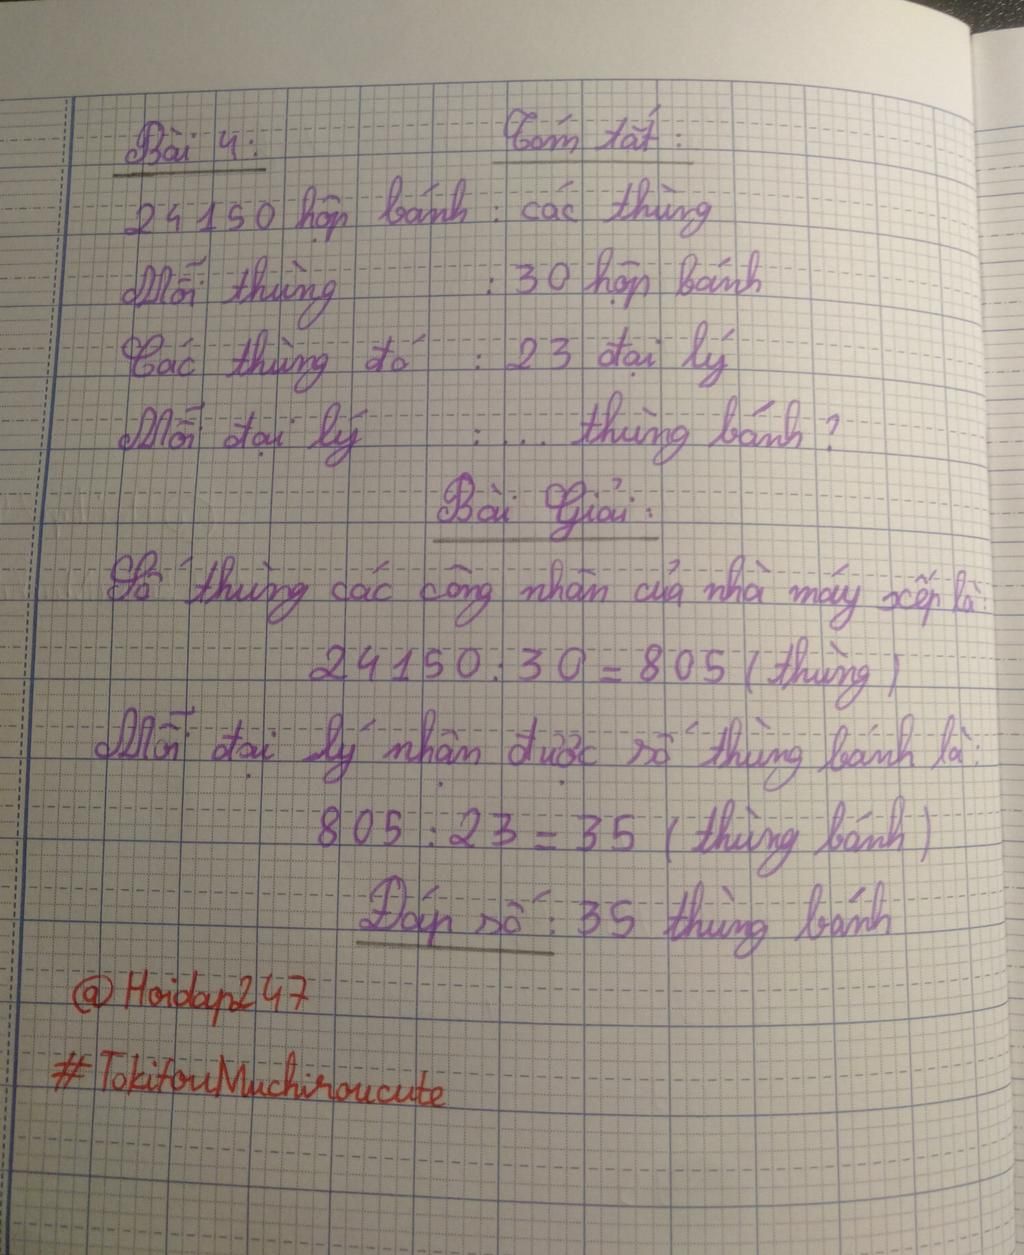 Bài 4: Tóm tắt:
24150 hộp bánh : các thùng
Mỗi thùng : 30 hộp bánh
Các thùng đó : 23 đại lý
Mỗi đại lý : ... thùng bánh?
Bài Giải:
Số thùng các công nhân của nhà máy xếp là:
24150 : 30 = 805 (thùng)
Mỗi đại lý nhận được số thùng bánh là:
805 : 23 = 35 (thùng bánh)
Đáp số : 35 thùng bánh
@Hoidap247
#TokitouMuchiroucute